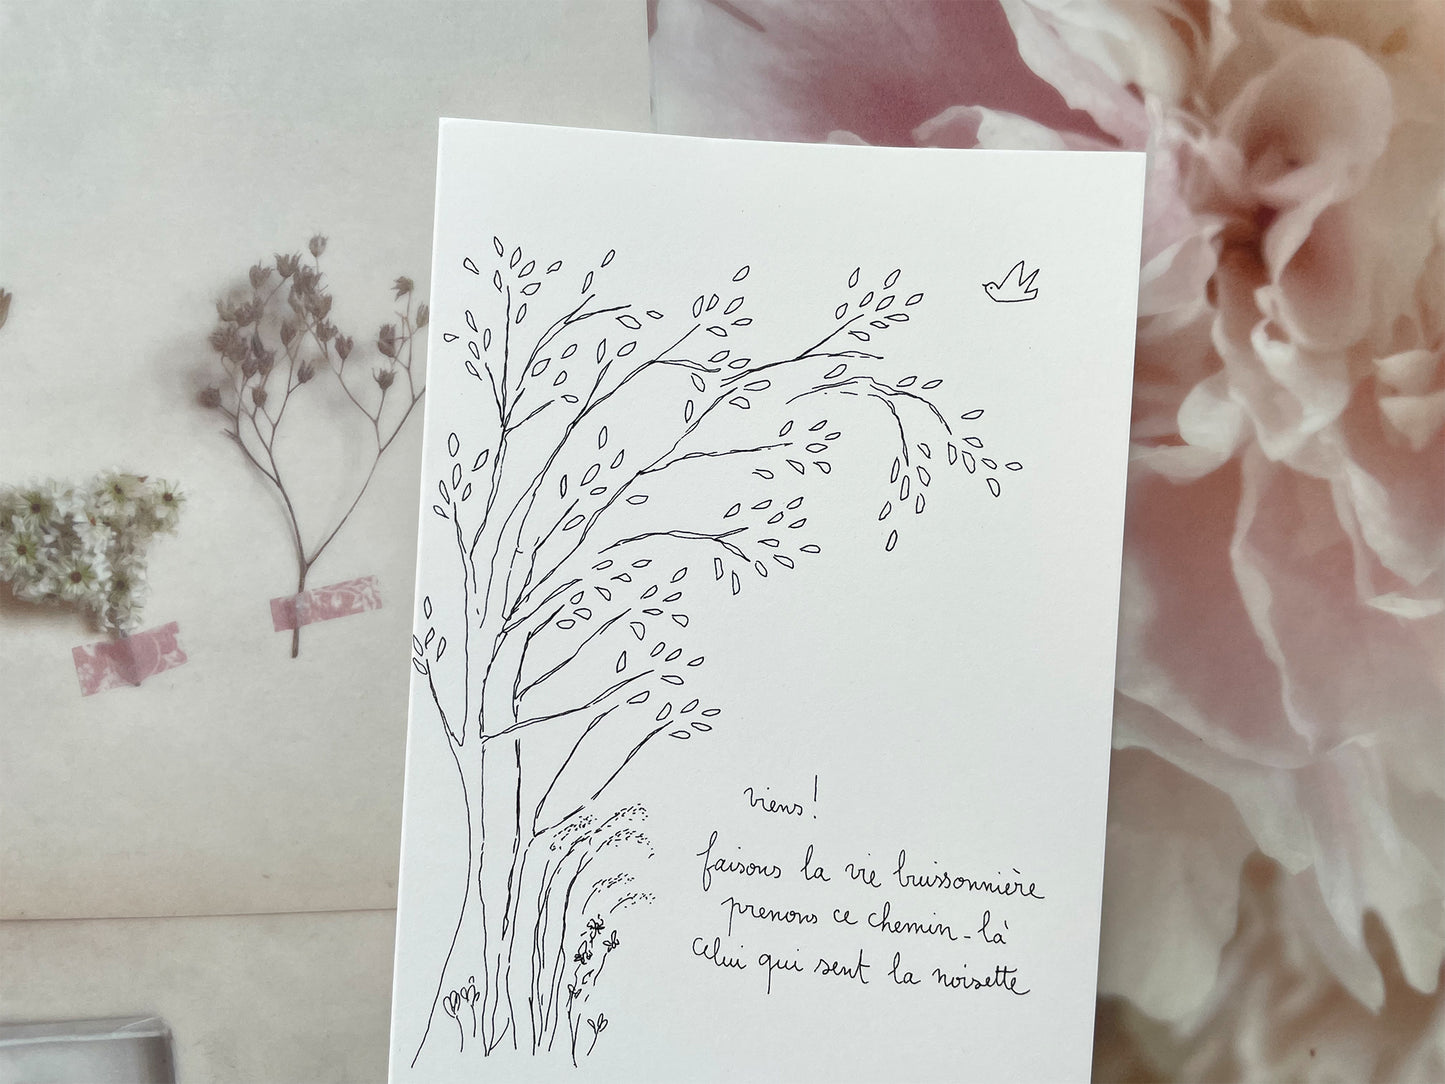 viens!
faisons la vie buissonnière
prenons ce chemin-là
celui qui sent la noisette